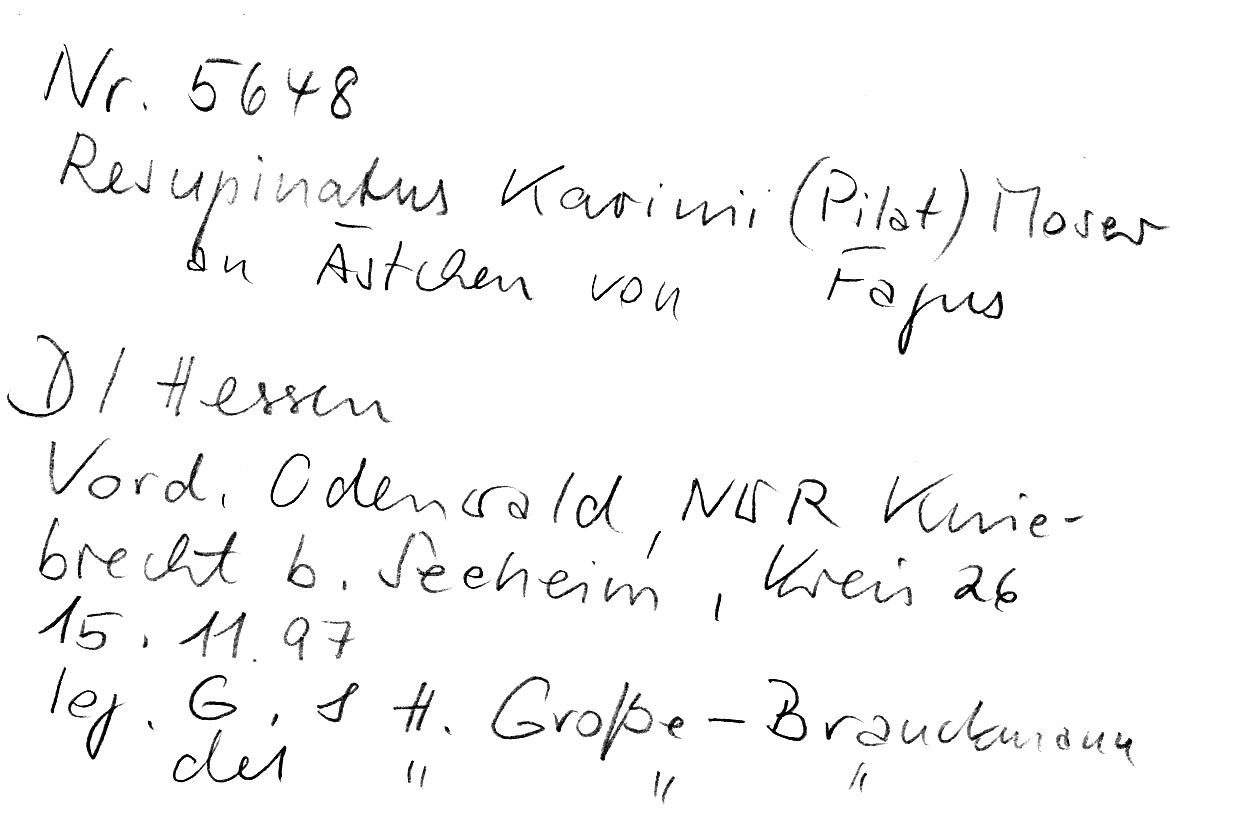 Nr. 5648
Resupinatus Kavinii (Pilat) Moser
an Ästchen von Fagus
D / Hessen
Vord. Odenwald, NWR Knie-
brecht b. Seeheim, Kreis 26
15. 11. 97
leg. G. & H. Große-Brauckmann
det " " "